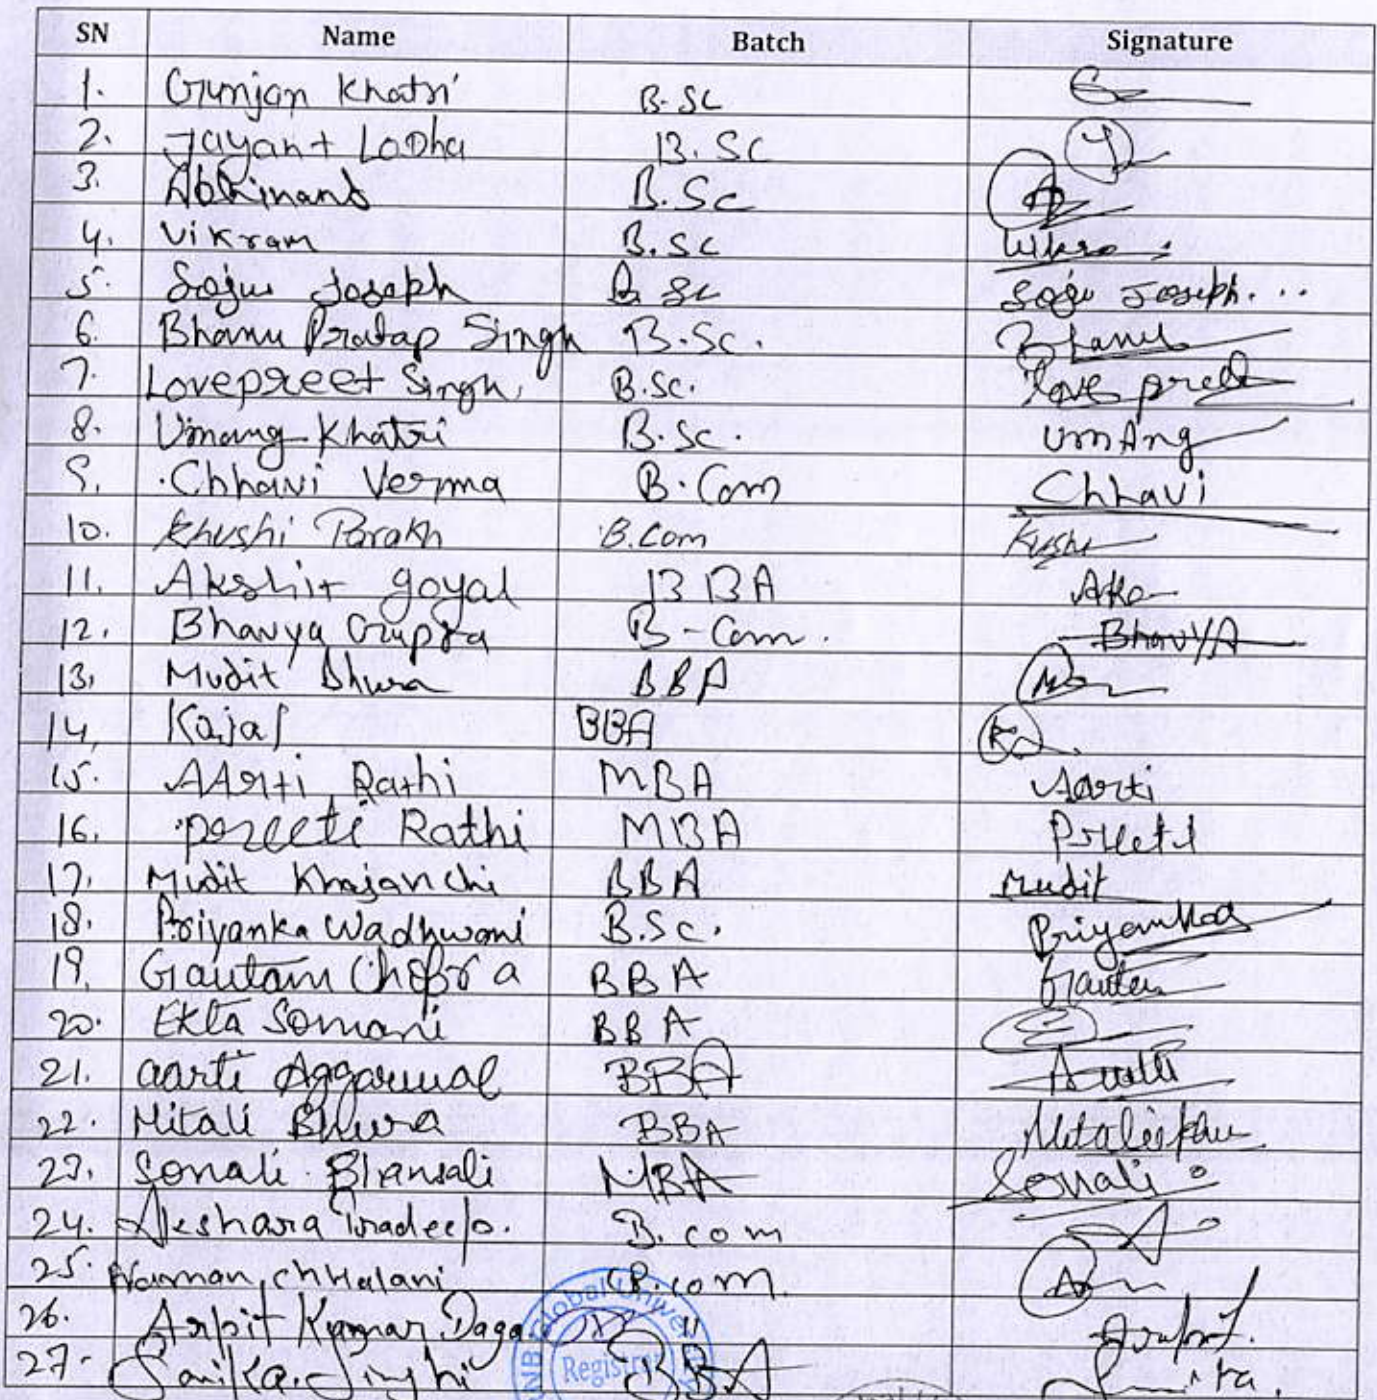 SN Name Batch Signature
1. Gunjan Khatri B.Sc
2. Jayant Ladha B.Sc
3. Abhinand B.Sc
4. Vikram B.Sc
5. Soju Joseph B.Sc Soju Joseph...
6. Bhanu Pratap Singh B.Sc. Bhanu
7. Lovepreet Singh B.Sc. Love preet
8. Umang Khatri B.Sc. UmAng
9. Chhavi Verma B.Com Chhavi
10. Khushi Parakh B.Com Kushi
11. Akshit goyal BBA
12. Bhavya Gupta B-Com. BhavYA
13. Mudit Bhura BBA
14. Kajal BBA
15. AArti Rathi MBA Aarti
16. Preeti Rathi MBA Preeti
17. Mudit Khajanchi BBA Mudit
18. Priyanka Wadhwani B.Sc. Priyanka
19. Gautam Chopra BBA Gautam
20. Ekta Somani BBA
21. aarti Aggarwal BBA
22. Mitali Bhura BBA
23. Sonali Bhansali MBA Sonali
24. Akshara Pradeep. B.com
25. Naman Chhalani B.com.
26. Arpit Kumar Daga 11
27. BBA
Global
Registrar